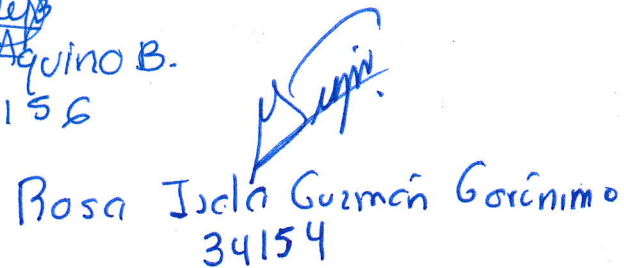 Aquino B.
156
Rosa Isela Guzmán Gerónimo
34154